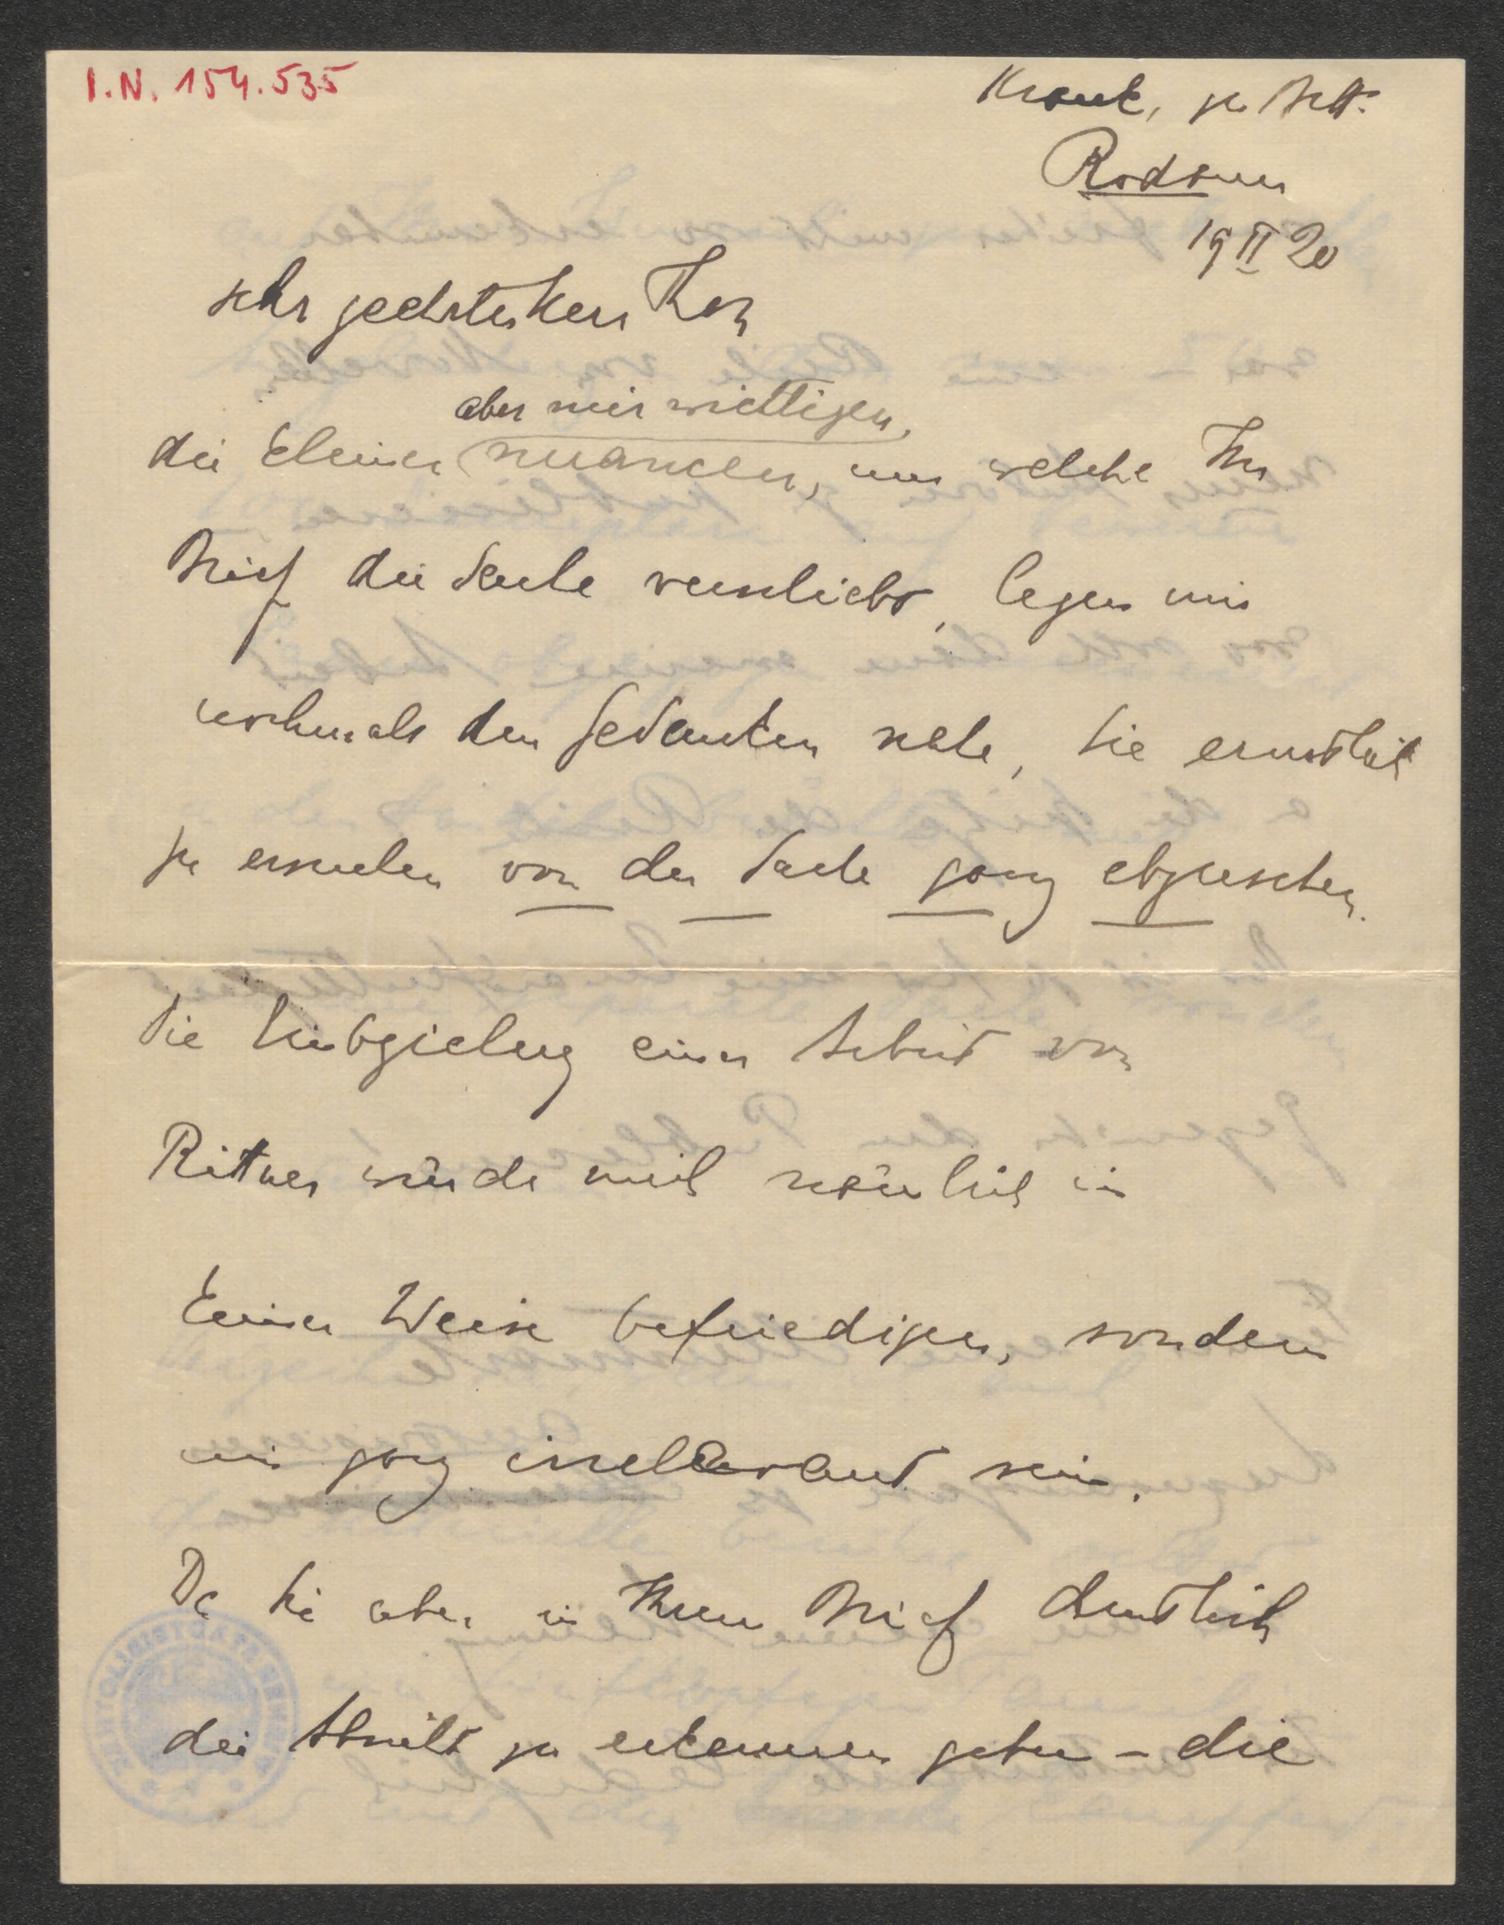 I.N. 154.535
Krank, zu Bett.
Rodaun
19 II 20
sehr geehrter Herr
aber mir wichtigen,
die kleinen nuancen, um welche Ihr
Brief die Sache verschiebt, legen mir
nochmals den Gedanken nahe, Sie ernstlich
zu ersuchen von der Sache ganz abzusehen.
Die Hinbeziehung einer Arbeit von
Rittner würde mich nämlich in
keiner Weise befriedigen, sondern
mir ganz irrelevant sein.
Da Sie aber in Ihrem Brief deutlich
die Absicht zu erkennen geben – die